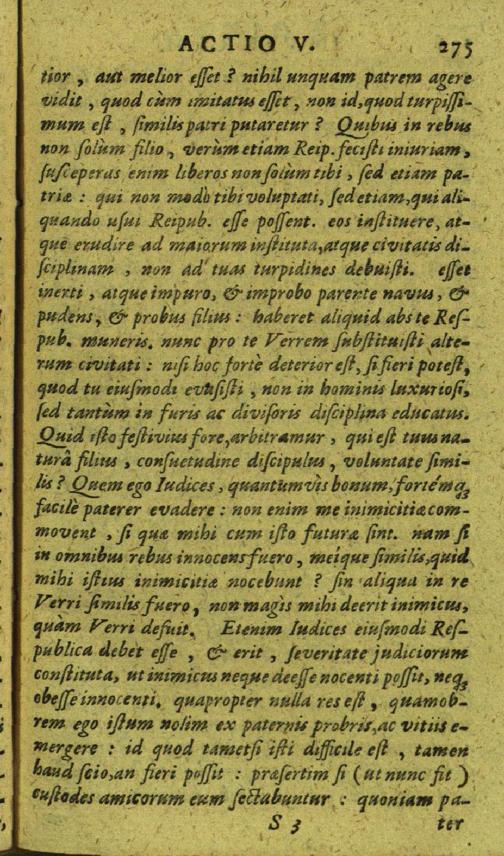 ACTIO V. 275
tior, aut melior esset? nihil unquam patrem agere
vidit, quod cùm imitatus esset, non id, quod turpissi-
mum est, similis patri putaretur? Quibus in rebus
non solùm filio, verùm etiam Reip. fecisti iniuriam,
susceperas enim liberos non solùm tibi, sed etiam pa-
triæ: qui non modò tibi voluptati, sed etiam, qui ali-
quando usui Reipub. esse possent. eos instituere, at-
que erudire ad maiorum instituta, atque civitatis di-
sciplinam, non ad tuas turpidines debuisti. esset
inerti, atque impuro, & improbo parente navus, &
pudens, & probus filius: haberet aliquid abs te Res-
pub. muneris. nunc pro te Verrem substituisti alte-
rum civitati: nisi hoc fortè deterior est, si fieri potest,
quod tu eiusmodi evasisti, non in hominis luxuriosi,
sed tantùm in furis ac divisoris disciplina educatus.
Quid isto festivius fore, arbitramur, qui est tuus na-
turâ filius, consuetudine discipulus, voluntate simi-
lis? Quem ego Iudices, quantumvis bonum, fortémq;
facilè paterer evadere: non enim me inimicitiæ com-
movent, si quæ mihi cum isto futuræ sint. nam si
in omnibus rebus innocens fuero, meíque similis, quid
mihi istius inimicitiæ nocebunt? sin aliqua in re
Verri similis fuero, non magis mihi deerit inimicus,
quàm Verri defuit. Etenim Iudices eiusmodi Res-
publica debet esse, & erit, severitate judiciorum
constituta, ut inimicus neque deesse nocenti possit, neq;
obesse innocenti. quapropter nulla res est, quamob-
rem ego istum nolim ex paternis probris, ac vitiis e-
mergere: id quod tametsi isti difficile est, tamen
haud scio, an fieri possit: præsertim si (ut nunc fit)
custodes amicorum eum sectabuntur: quoniam pa-
S 3 ter